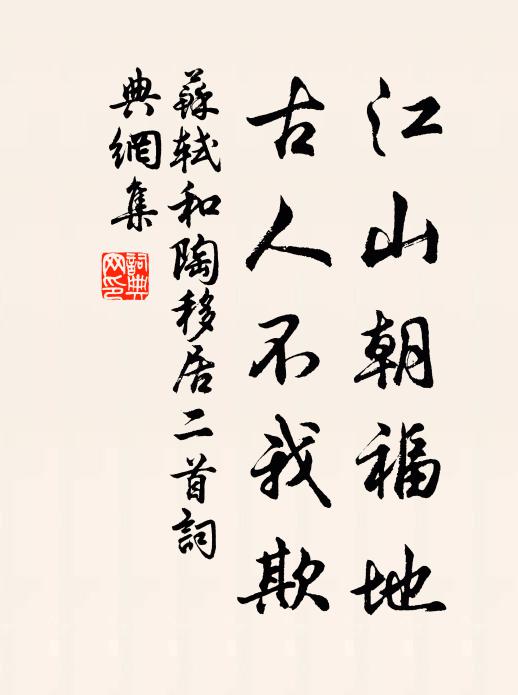 江山朝福地
古人不我欺
蘇軾和陶移居二首詞
典網集
詞典
网印